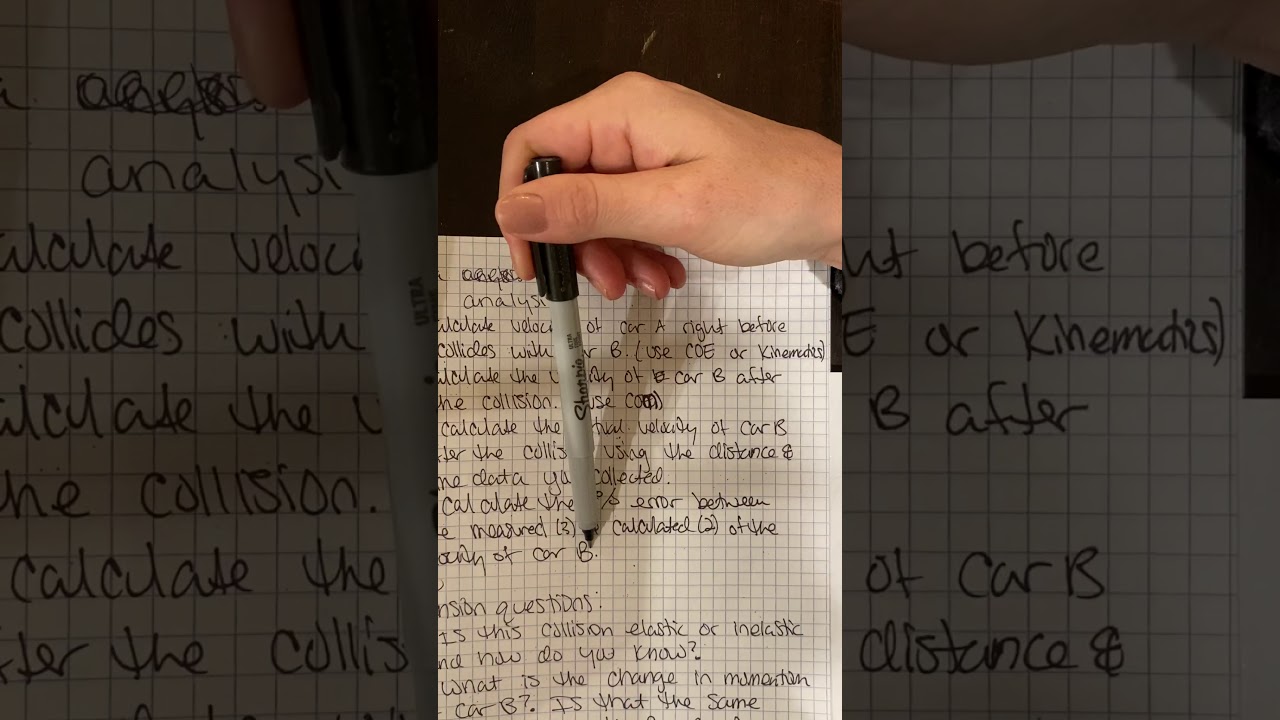 analysi
alculate veloc of car A right before
collides with r B. (use COE or Kinematics)
alculate the v ity of car B after
he collision. use CO
calculate the tual velocity of car B
ter the collisi using the distance &
me data yo collected.
calculate the % error between
e measured (3) calculated (2) of the
ocity of car B.
nsion questions:
Is this collision elastic or inelastic
nd how do you know?
what is the change in momentum
car B? Is that the same
Sharpie
ULTRA